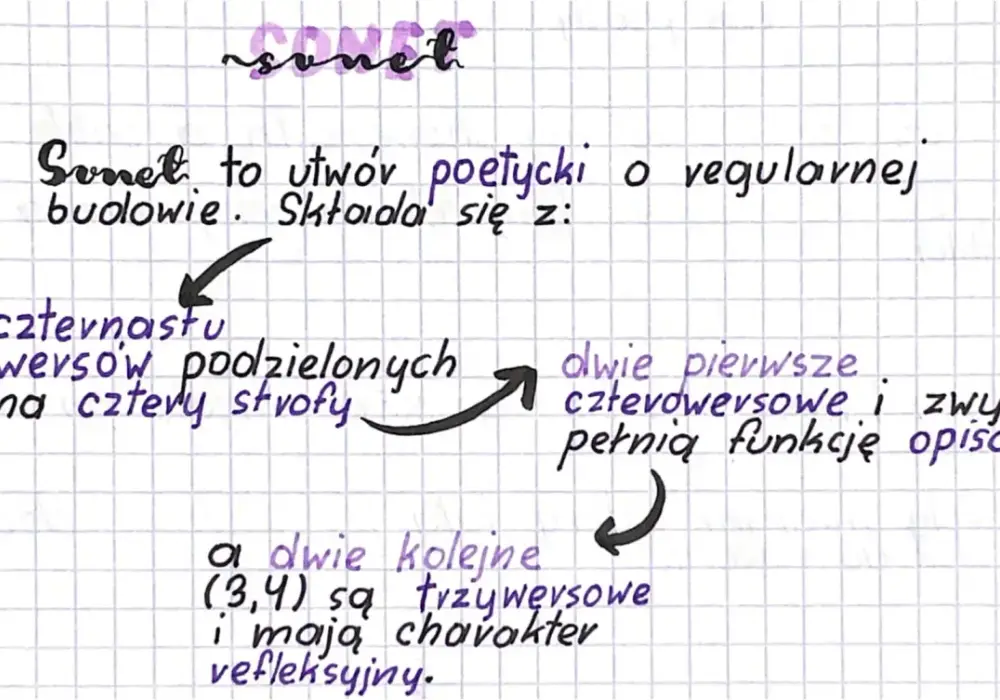 SONET
sonet
Sonet to utwór poetycki o regularnej
budowie. Składa się z:
czternastu
wersów podzielonych
na cztery strofy
dwie pierwsze
czterowersowe i zwy
pełnią funkcję opiso
a dwie kolejne
(3,4) są trzywersowe
i mają charakter
refleksyjny.